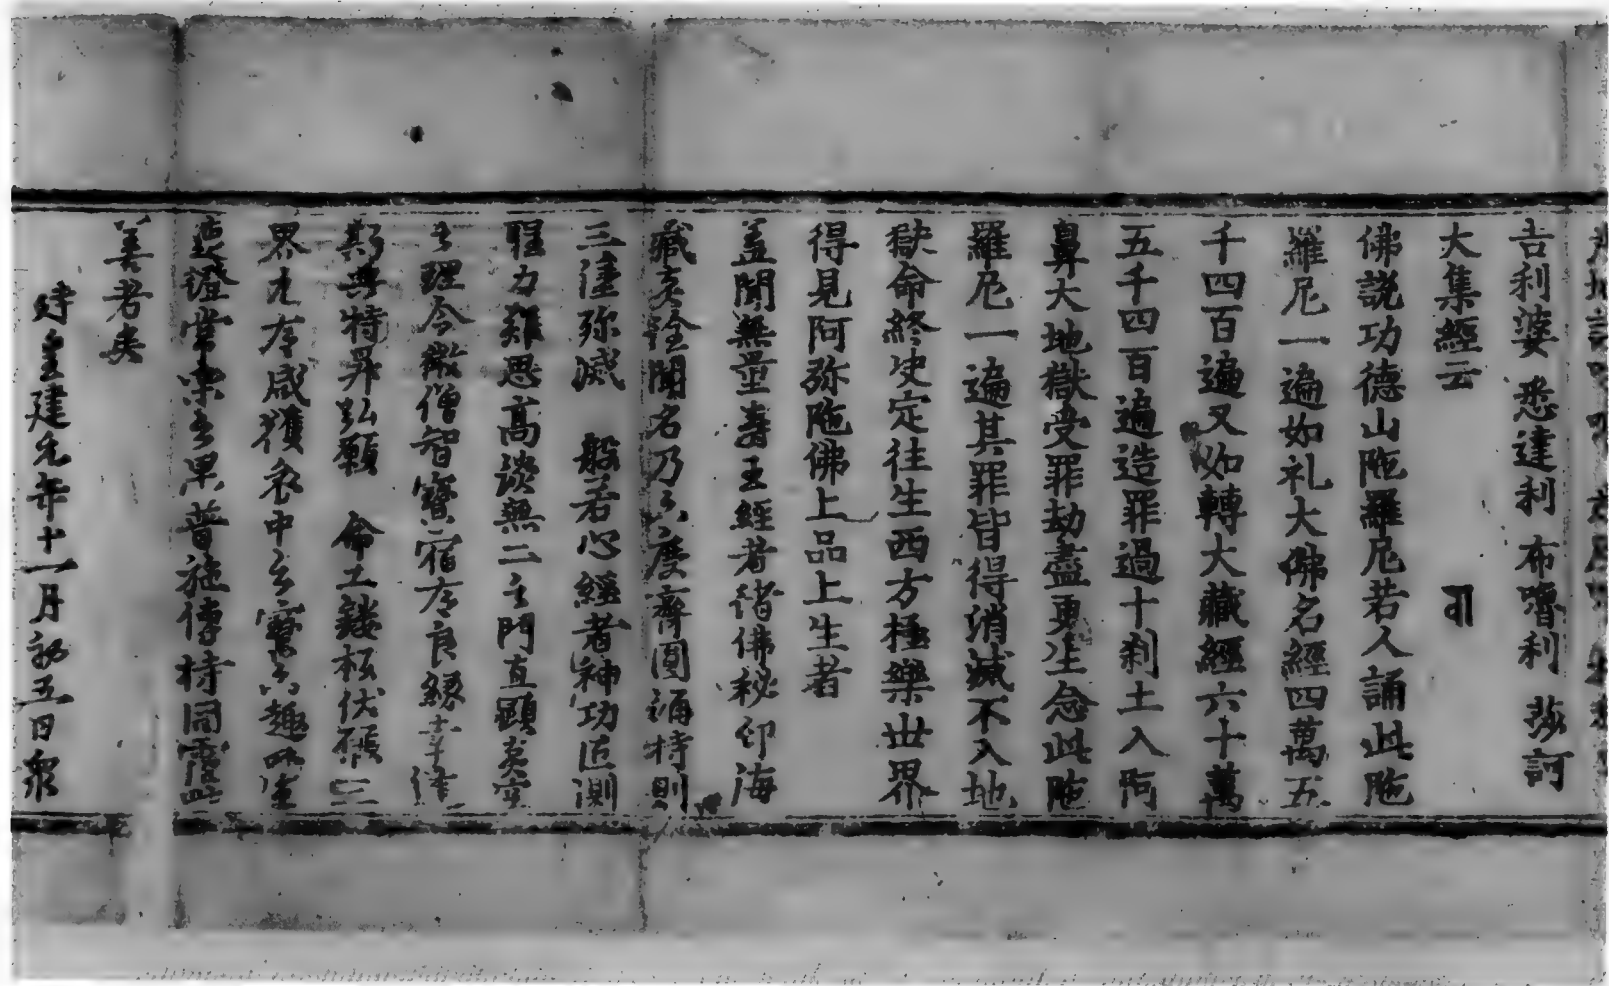 吉利婆 悉達利 布嚕利 莎訶
大集經云
佛説功德山陁羅尼若人誦此陁
羅尼一遍如礼大佛名經四萬五
千四百遍又如轉大藏經六十萬
五千四百遍造罪過十刹土入阿
鼻大地獄受罪劫盡更生念此陁
羅尼一遍其罪皆得消滅不入地
獄命終决定往生西方極樂世界
得見阿弥陁佛上品上生者
盖聞無量壽王經者諸佛秘印海
藏 詮聞名乃 度齊圓誦持則
三塗弥滅 般若心經者神功叵測
聖力難思高談無二之門直顯真空
之理今微僧智寳宿有良緣幸逢
斯典特昇弘願 命工鏤板伏願三
界九有咸獲衣中之寳六趣四生
速證常樂之果普施傳持同霑此
善者矣
時皇建元年十一月初五日衆